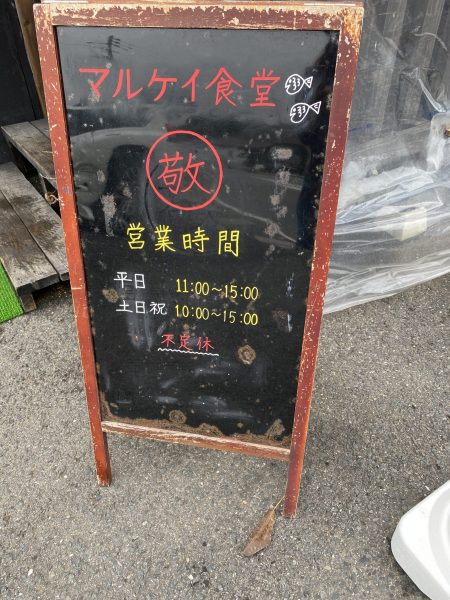 マルケイ食堂
敬
営業時間
平日 11:00～15:00
土日祝 10:00～15:00
不定休